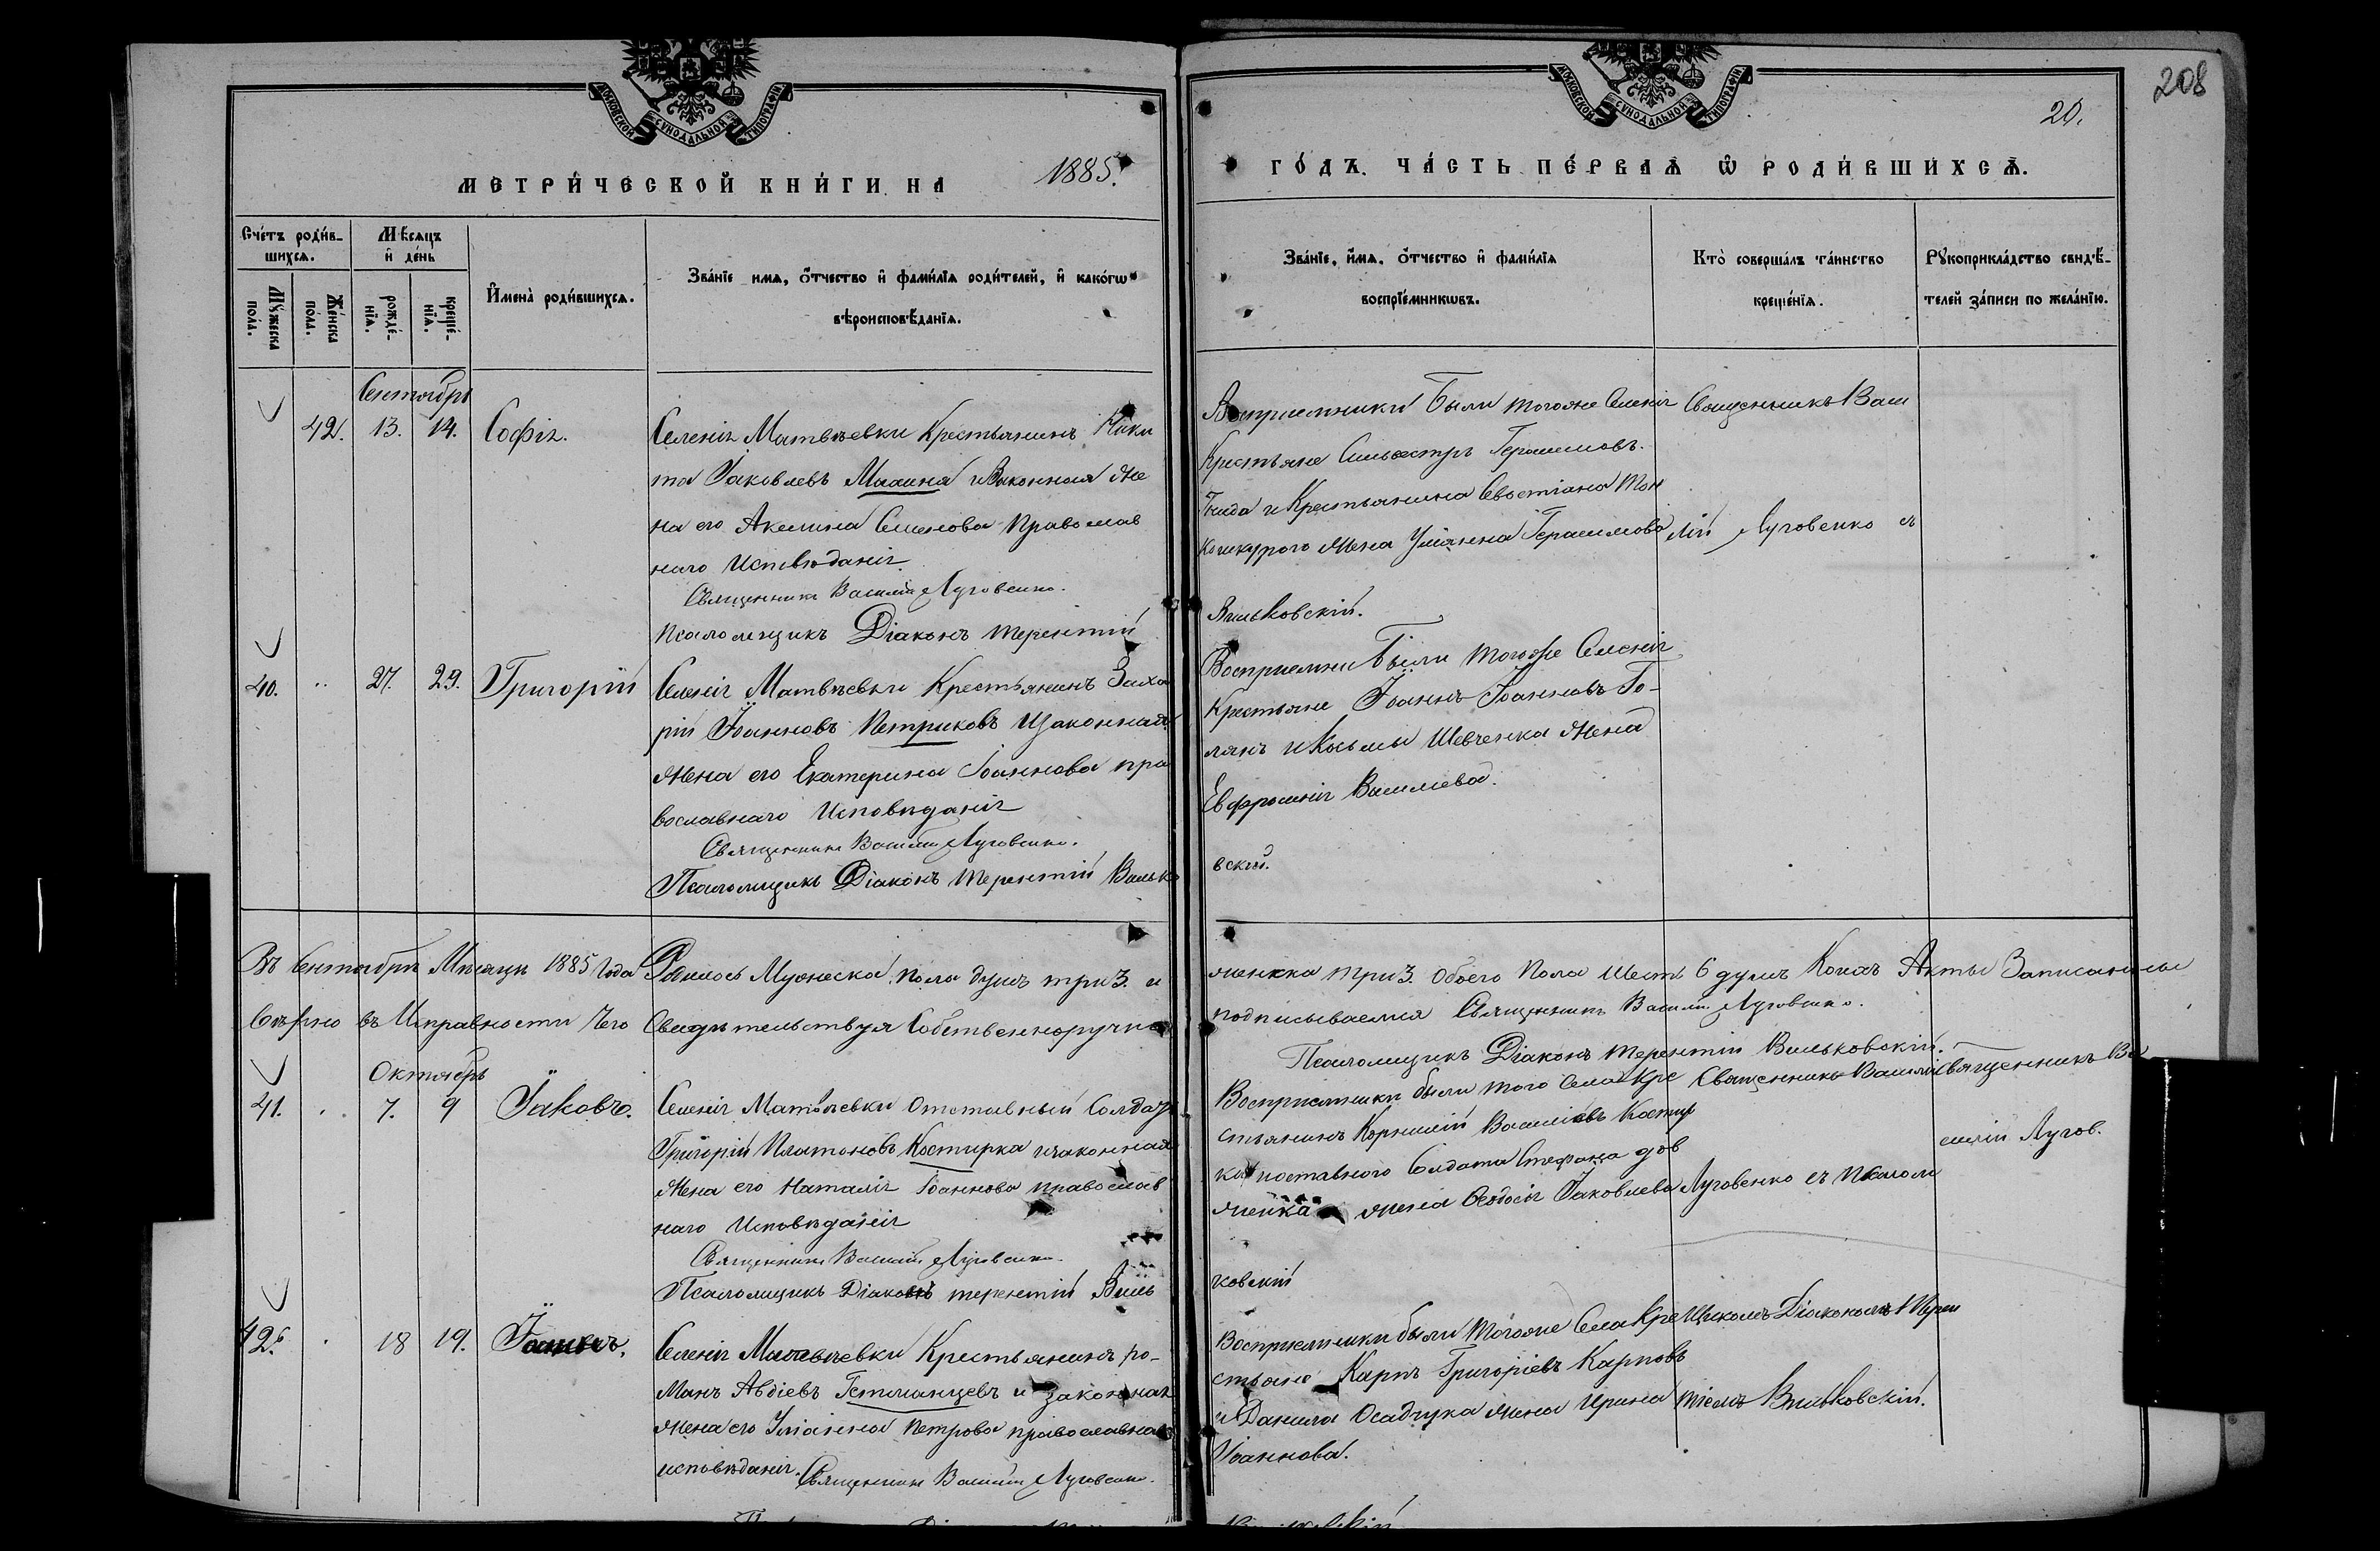 МОСКОВСКОЙ СѴНОДАЛЬНОЙ ТИПОГРАФІИ
МОСКОВСКОЙ СѴНОДАЛЬНОЙ ТИПОГРАФІИ
208
20.
МЕТРИ́ЧЕСКОЙ КНИ́ГИ НА 1885.
ГО́ДЪ. ЧА́СТЬ ПЕ́РВАѦ Ѡ҆ РОДИ́ВШИХСѦ.
Сче́тъ роди́в-
шихсѧ.
Мꙋ́жеска
по́ла.
Же́нска
по́ла.
Мѣ́сяцъ
и҆ де́нь
рожде́-
нїѧ.
креще́-
нїѧ.
И҆мена̀ роди́вшихсѧ.
Зва́нїе имѧ, о҆́тчество и҆ фами́лїѧ роди́телей, и҆ како́гѡ
вѣроисповѣ́данїѧ.
Зва́нїе, и҆́мѧ, о҆́тчество и҆ фами́лїѧ
воспрїе́мникѡвъ.
Кто̀ соверша́лъ та́инство
креще́нїѧ.
Рꙋкоприкла́дство свидѣ́-
телей за́писи по жела́нїю.
Сентябрь
42. 13. 14. Софія.
Селенія Матвѣевки Крестьянинъ Ники
та Іаковлевъ Малина и Законная Же
на его Акелина Семенова Православ
наго Исповѣданія
Священникъ Василій Луговенко.
Псаломщикъ Діаконъ Терентій
Воспріемники Были тогоже Селенія
Крестьяне Сильвестръ Герасимовъ
Гнида и Крестьянина Севостіана Мон
жена Уліанна Герасимова
Вильковскій.
Священникъ Васи
лій Луговенко съ
40. .. 27. 29. Григорій
Селенія Матвѣевки Крестьянинъ Заха
рій Іоанновъ Петриковъ Изаконная
Жена его Екатерина Іоаннова пра
вославнаго Исповѣданія
Священникъ Василій Луговенко.
Псаломщикъ Діаконъ Терентій Вилько
Воспріемни Были тогоже Селенія
Крестьяне Іоаннъ Іоанновъ Го-
лякъ и Косьмы Шевченка Жена
Евфросинія Василиева.
вскій.
Въ Сентябрѣ Мѣсяцѣ 1885 Года Родилось Мужеска пола душъ три 3. и
женска три 3. Обоего Пола шесть 6 душъ Коихъ Акты Записанные
Свѣрно въ Исправности Чего Свидѣтельствуя Собственноручно
подписываемся Священникъ Василій Луговенко.
Псаломщикъ Діаконъ Терентій Вильковскій.
Октябрь
41. .. 7. 9 Іаковъ.
Селенія Матвѣевки Отставный Солдатъ
Григорій Платоновъ Костирка и законная
Жена его Наталія Іоаннова православ
наго Исповѣданія
Священникъ Василій Луговенко.
Псаломщикъ Діаконъ терентій Виль
Воспріемники были того Села Кре
стьянинъ Корнилій Василіевъ Костир
ка Солдата Стефана дов
женка жена Ѳеодосія Іаковлева
ковскій
Священникъ Василій
Луговенко съ Псалом
Священникъ Ва
силій Лугов.
42. . 18 19. Іоаннъ.
Селенія Матвѣевки Крестьянинъ Ро-
манъ Авдіевъ Гетманцевъ и законная
Жена его Уліанна Петрова православнаго
исповѣданія. Священникъ Василій Луговенко.
Воспріемники были тогоже Села Кре
стьяне Карпъ Григоріевъ Карповъ
и Данила Осадчука жена Ирина
Іоаннова.
щикомъ Діакономъ Терен
тіемъ Вильковскій.